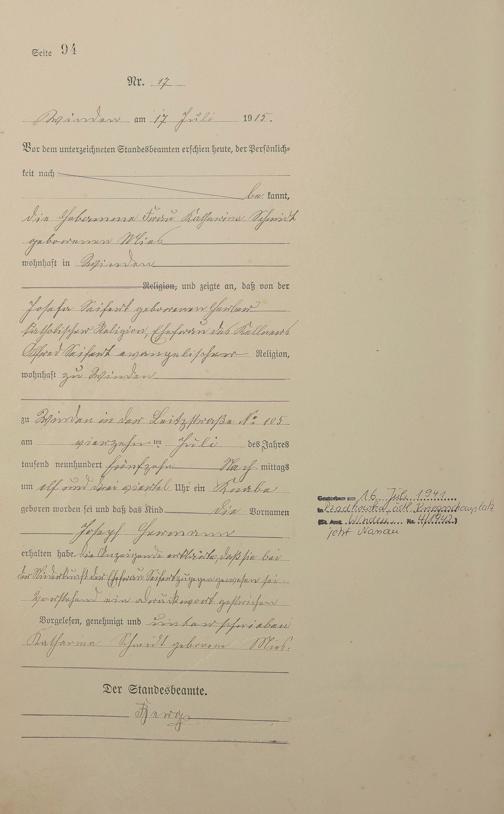 Seite 94
Nr. 17
Winden am 17 Juli 1915.
Vor dem unterzeichneten Standesbeamten erschien heute, der Persönlich-
keit nach
be kannt,
die Hebamme Frau Katharina Schmidt
geborenen Mies
wohnhaft in Winden
Religion, und zeigte an, daß von der
Josefa Seifert geborenen
katholischer Religion, Ehefrau des Kellners
Alfred Seifert evangelischer Religion,
wohnhaft zu Winden
zu Winden in der No 105
am vierzehn ten Juli des Jahres
tausend neunhundert fünfzehn Nach mittags
um elf und drei viertel Uhr ein Knabe
geboren worden sei und daß das Kind die Vornamen
Joseph Hermann
erhalten habe. Die Anzeigende erklärte, daß sie bei
der Niederkunft der Ehefrau Seifert zugegen gewesen sei.
Vorstehend ein Druckwort gestrichen
Vorgelesen, genehmigt und unterschrieben
Katharina Schmidt geborene Mies.
Der Standesbeamte.
Gestorben am 16. Juli 1941
in
(St. Amt Winden Nr.
jetzt Nassau